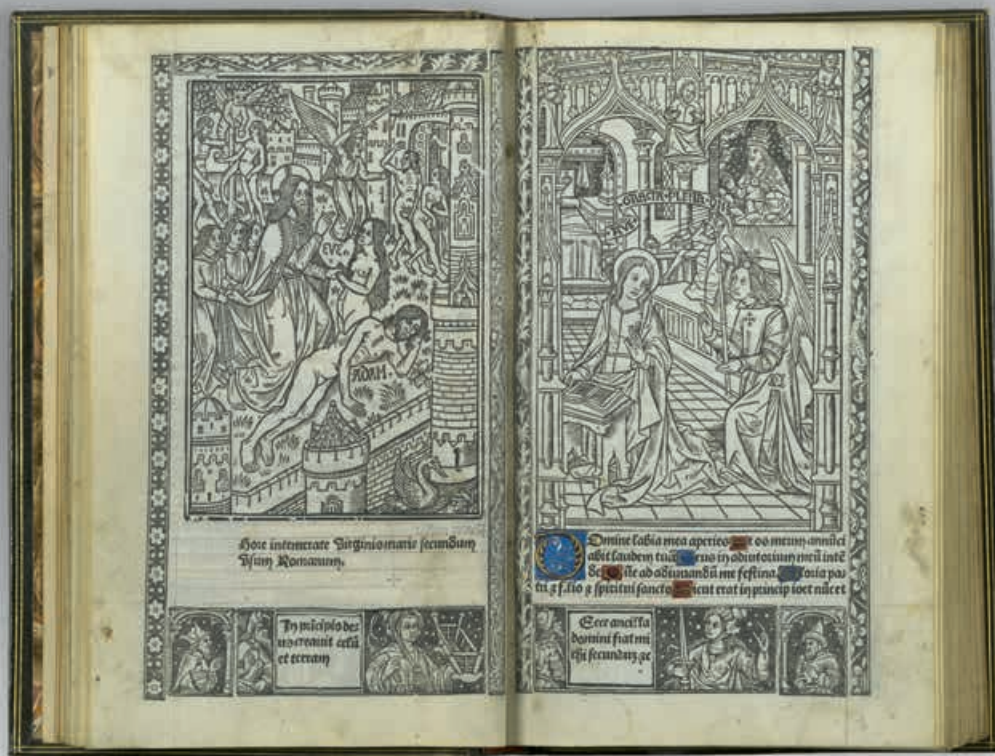 EVE
ADAM
Hore intemerate Virginis marie secundum
Vsum Romanum.
In pricipio de
us creauit celū
et terram
AVE GRACIA PLENA
Domine labia mea aperies Et os meum annūci
abit laudem tuā Deus in adiutorium meū intē
de Dn̄e ad adiuuandū me festina Gloria pa
tri & filio & spiritui sancto Sicut erat in princip ioet nūc et
Ecce ancilla
domini fiat mi
chi secunduz